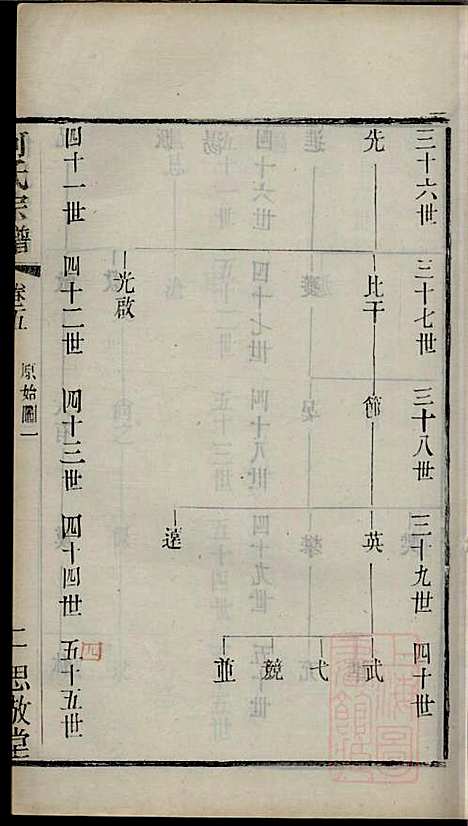 三十六世 三十七世 三十八世 三十九世 四十世
先 比干 節 英 武
弋
競
並
達
光啟
四十一世 四十二世 四十三世 四十四世 五十五世
四
何氏宗譜 卷之五 原始圖一 二 思敬堂